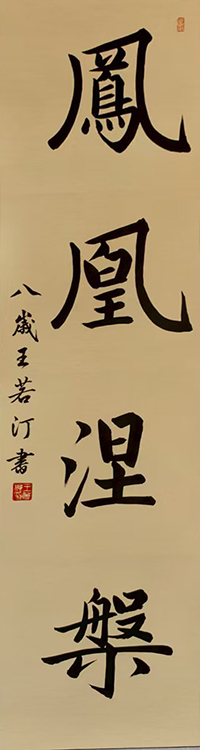 鳳凰涅槃
八歲王若汀書